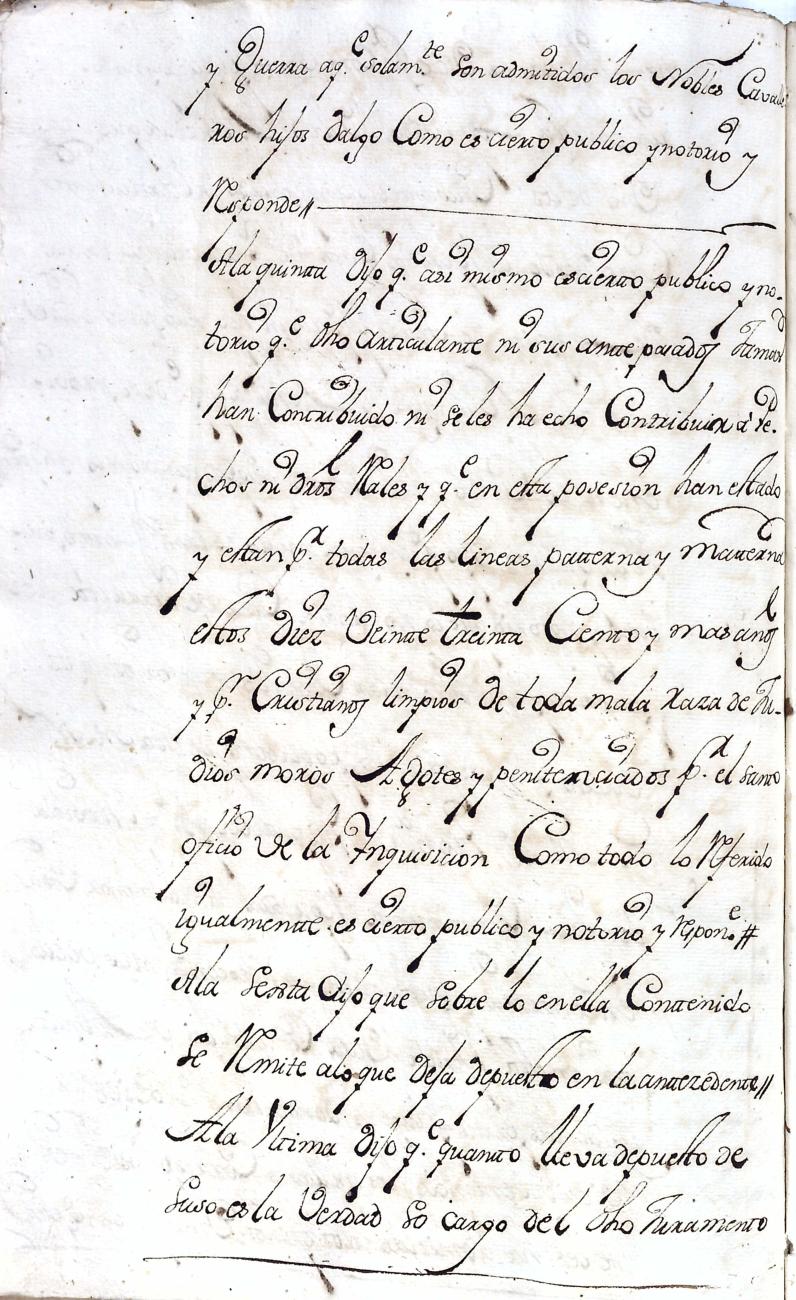 y Guerra aq.e solam.te son admitidos los Nobles Cavalle
ros hijos dalgo Como es cierto publico y notorio y
Responde//
Ala quinta dijo q.e asi mismo es cierto publico y no-
torio q.e dho articulante ni sus antte pasados Jamas
han Contribuido ni se les ha echo Contribuir à Pe-
chos ni dros Rales y q.e en esta posesion han estado
y estan p.r todas las lineas patterna y matterna
estos diez Veinte treinta Ciento y mas años
y p.r Cristianos limpios de toda mala Raza de Ju-
dios moros Agotes y penitenciados p.r el santo
oficio de la Inquisicion Como todo lo Referido
igualmentte es cierto publico y notorio y respon.e //
Ala Sexta dijo que sobre lo en ella Conttenido
se Rmite alo que deja depuesto en la antezedente//
Ala Vltima dijo q.e quanto lleva depuesto de
suso es la Verdad so cargo del dho Juramento